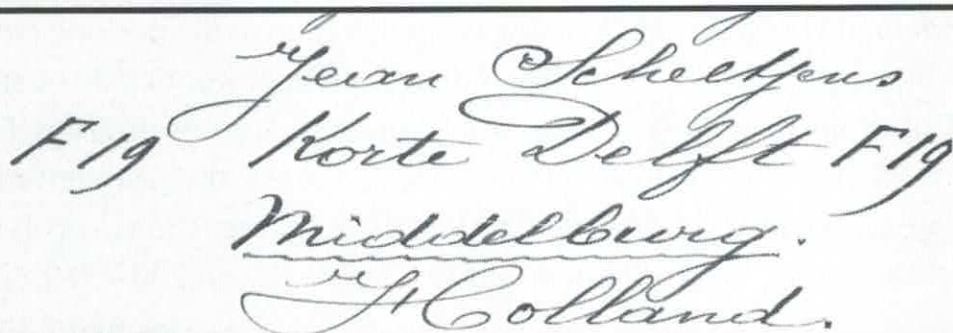 Jean Scheltjens
F19 Korte Delft F19
Middelburg.
Holland.